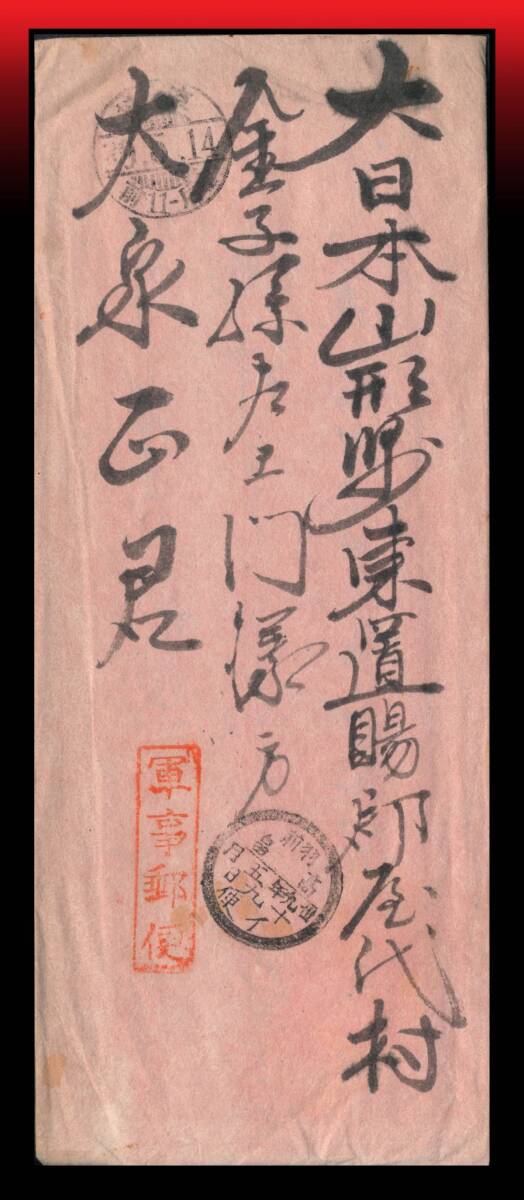 大日本山形縣東置賜郡屋代村
金子孫左エ門様方
大泉正君
軍事郵便
14